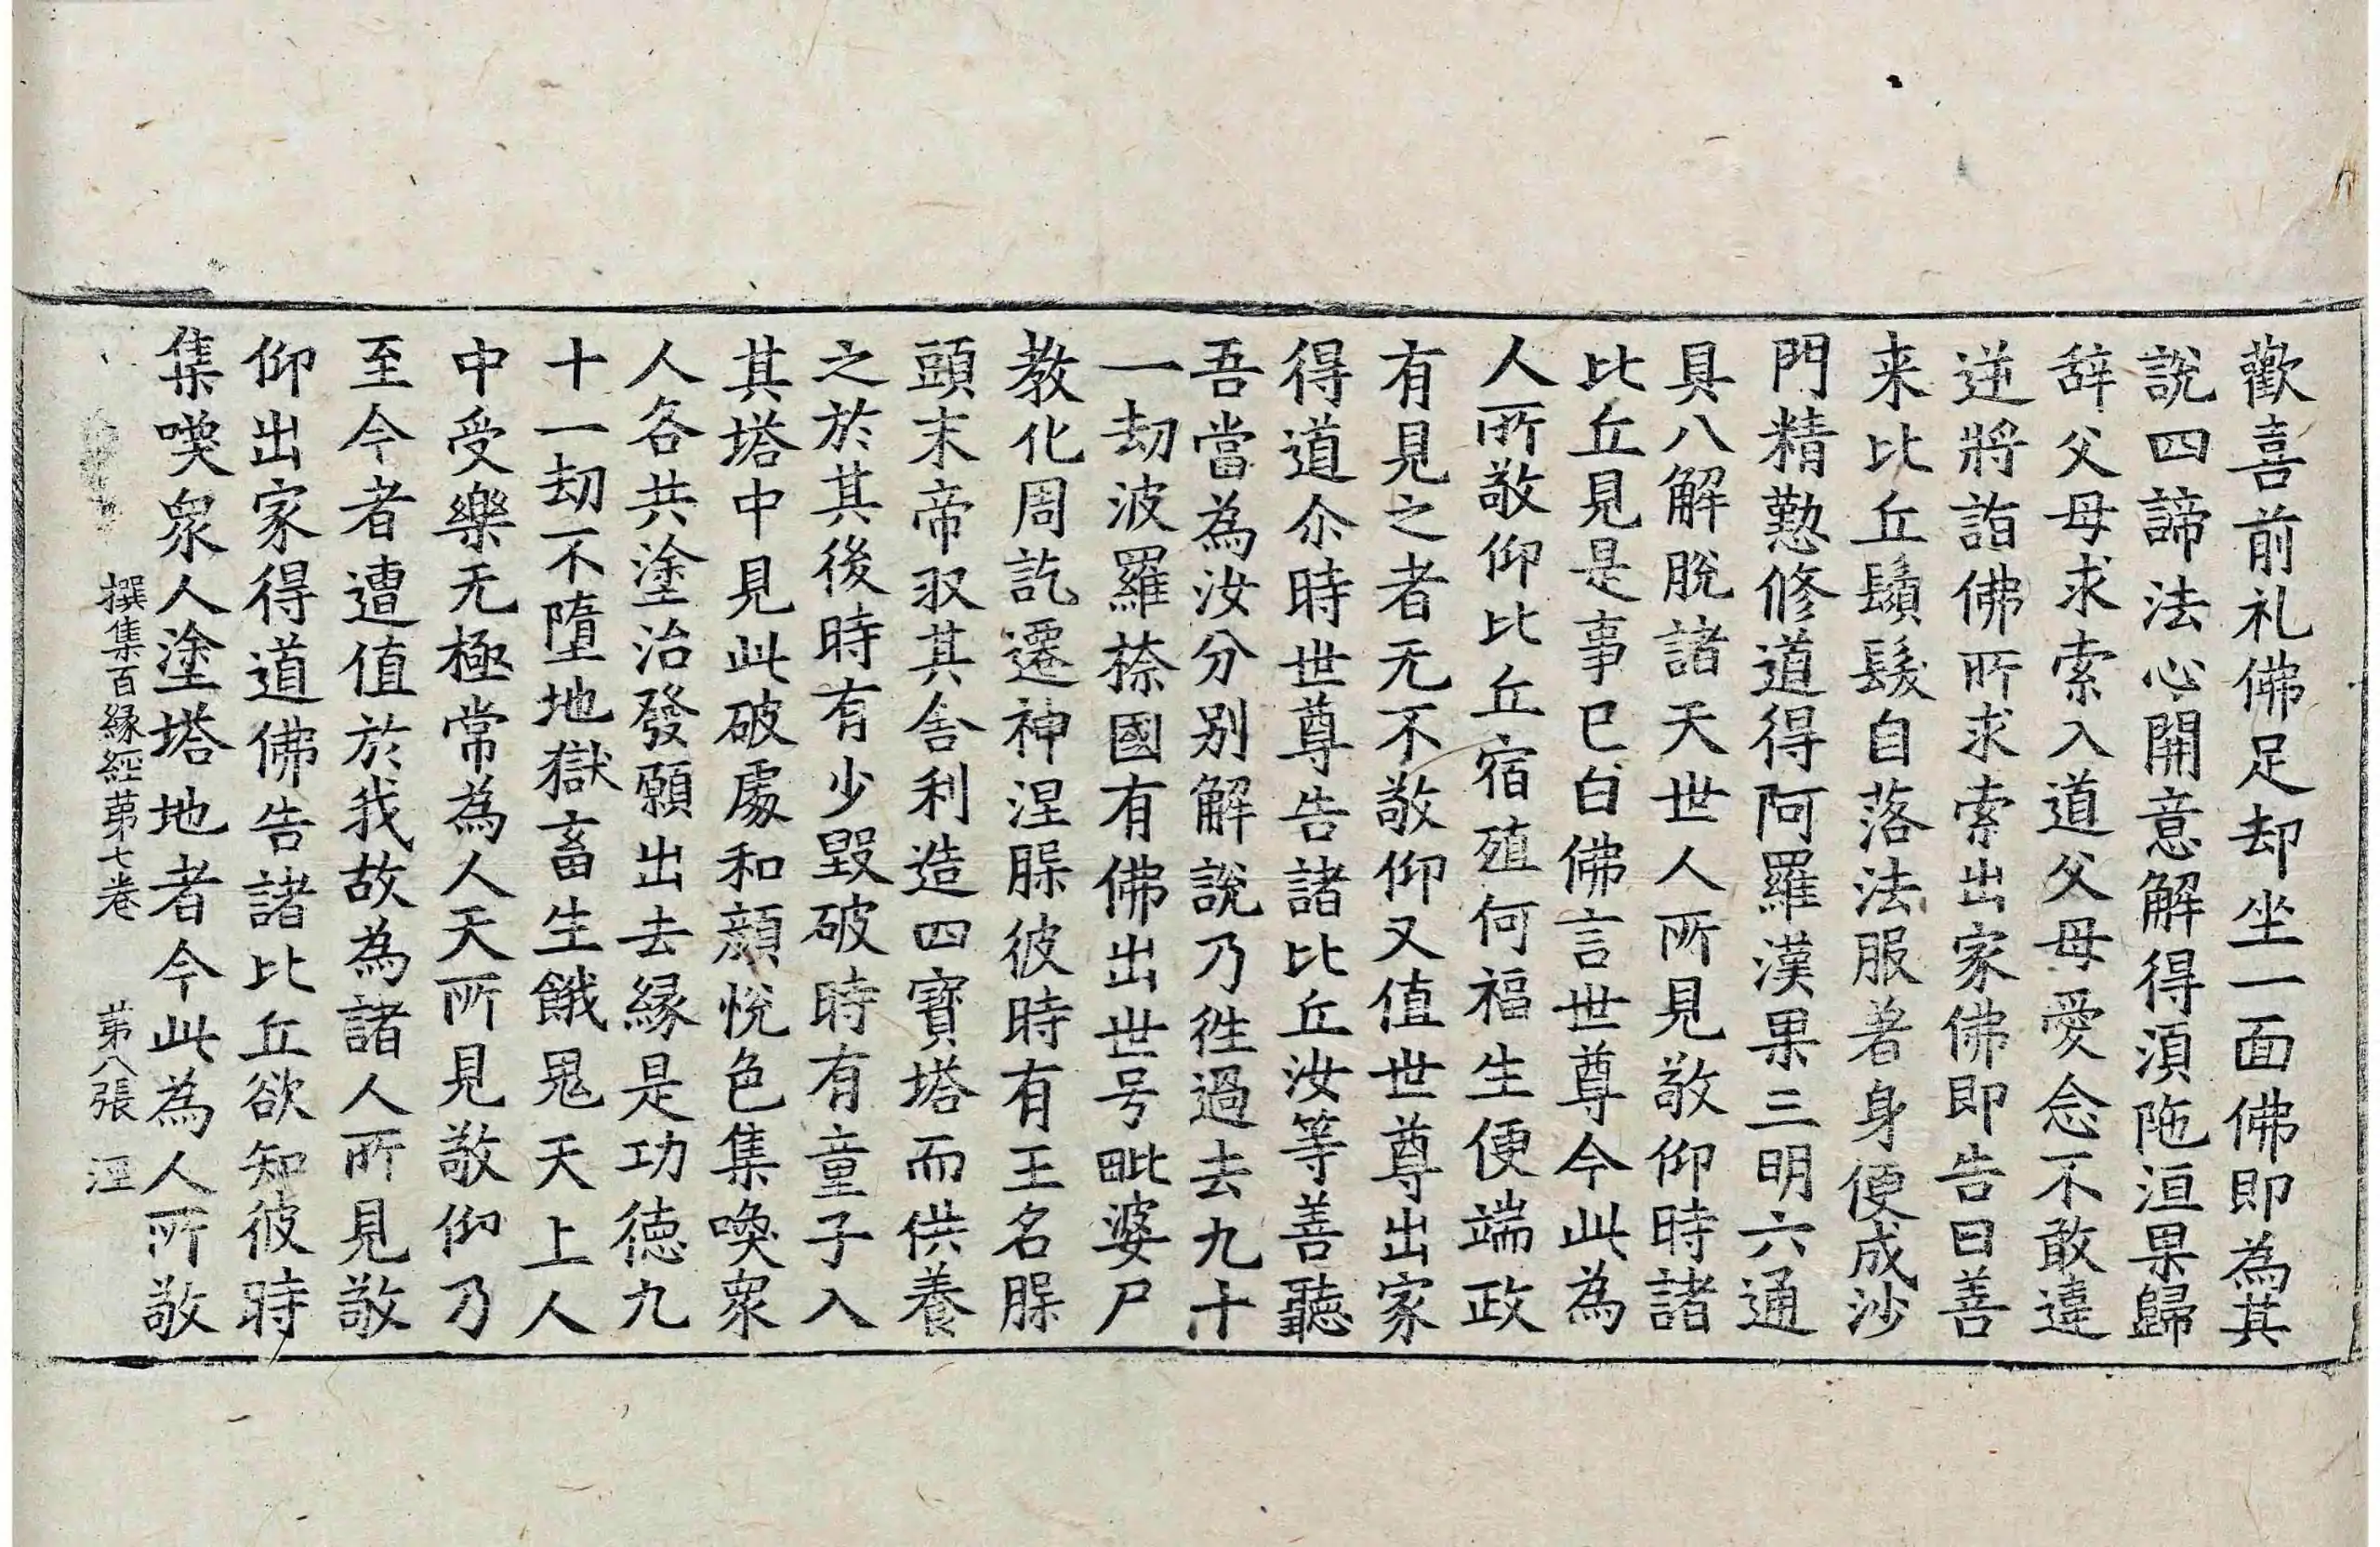 歡喜前礼佛足却坐一面佛即為其
說四諦法心開意解得湏陁洹果歸
辞父母求索入道父母愛念不敢違
逆將詣佛所求索出家佛即告曰善
来比丘鬚髮自落法服著身便成沙
門精懃修道得阿羅漢果三明六通
具八解脫諸天世人所見敬仰時諸
比丘見是事已白佛言世尊今此為
人所敬仰比丘宿殖何福生便端政
有見之者无不敬仰又值世尊出家
得道尒時世尊告諸比丘汝等善聽
吾當為汝分别解說乃徃過去九十
一劫波羅㮈國有佛出世号毗婆尸
教化周訖遷神涅脲彼時有王名脲
頭末帝収其舍利造四寶塔而供養
之於其後時有少毀破時有童子入
其塔中見此破處和顔悅色集喚衆
人各共塗治發願出去縁是功徳九
十一劫不墮地獄畜生餓鬼天上人
中受樂无極常為人天所見敬仰乃
至今者遭值於我故為諸人所見敬
仰出家得道佛告諸比丘欲知彼時
集喚衆人塗塔地者今此為人所敬
撰集百縁經第七卷 第八張 涇